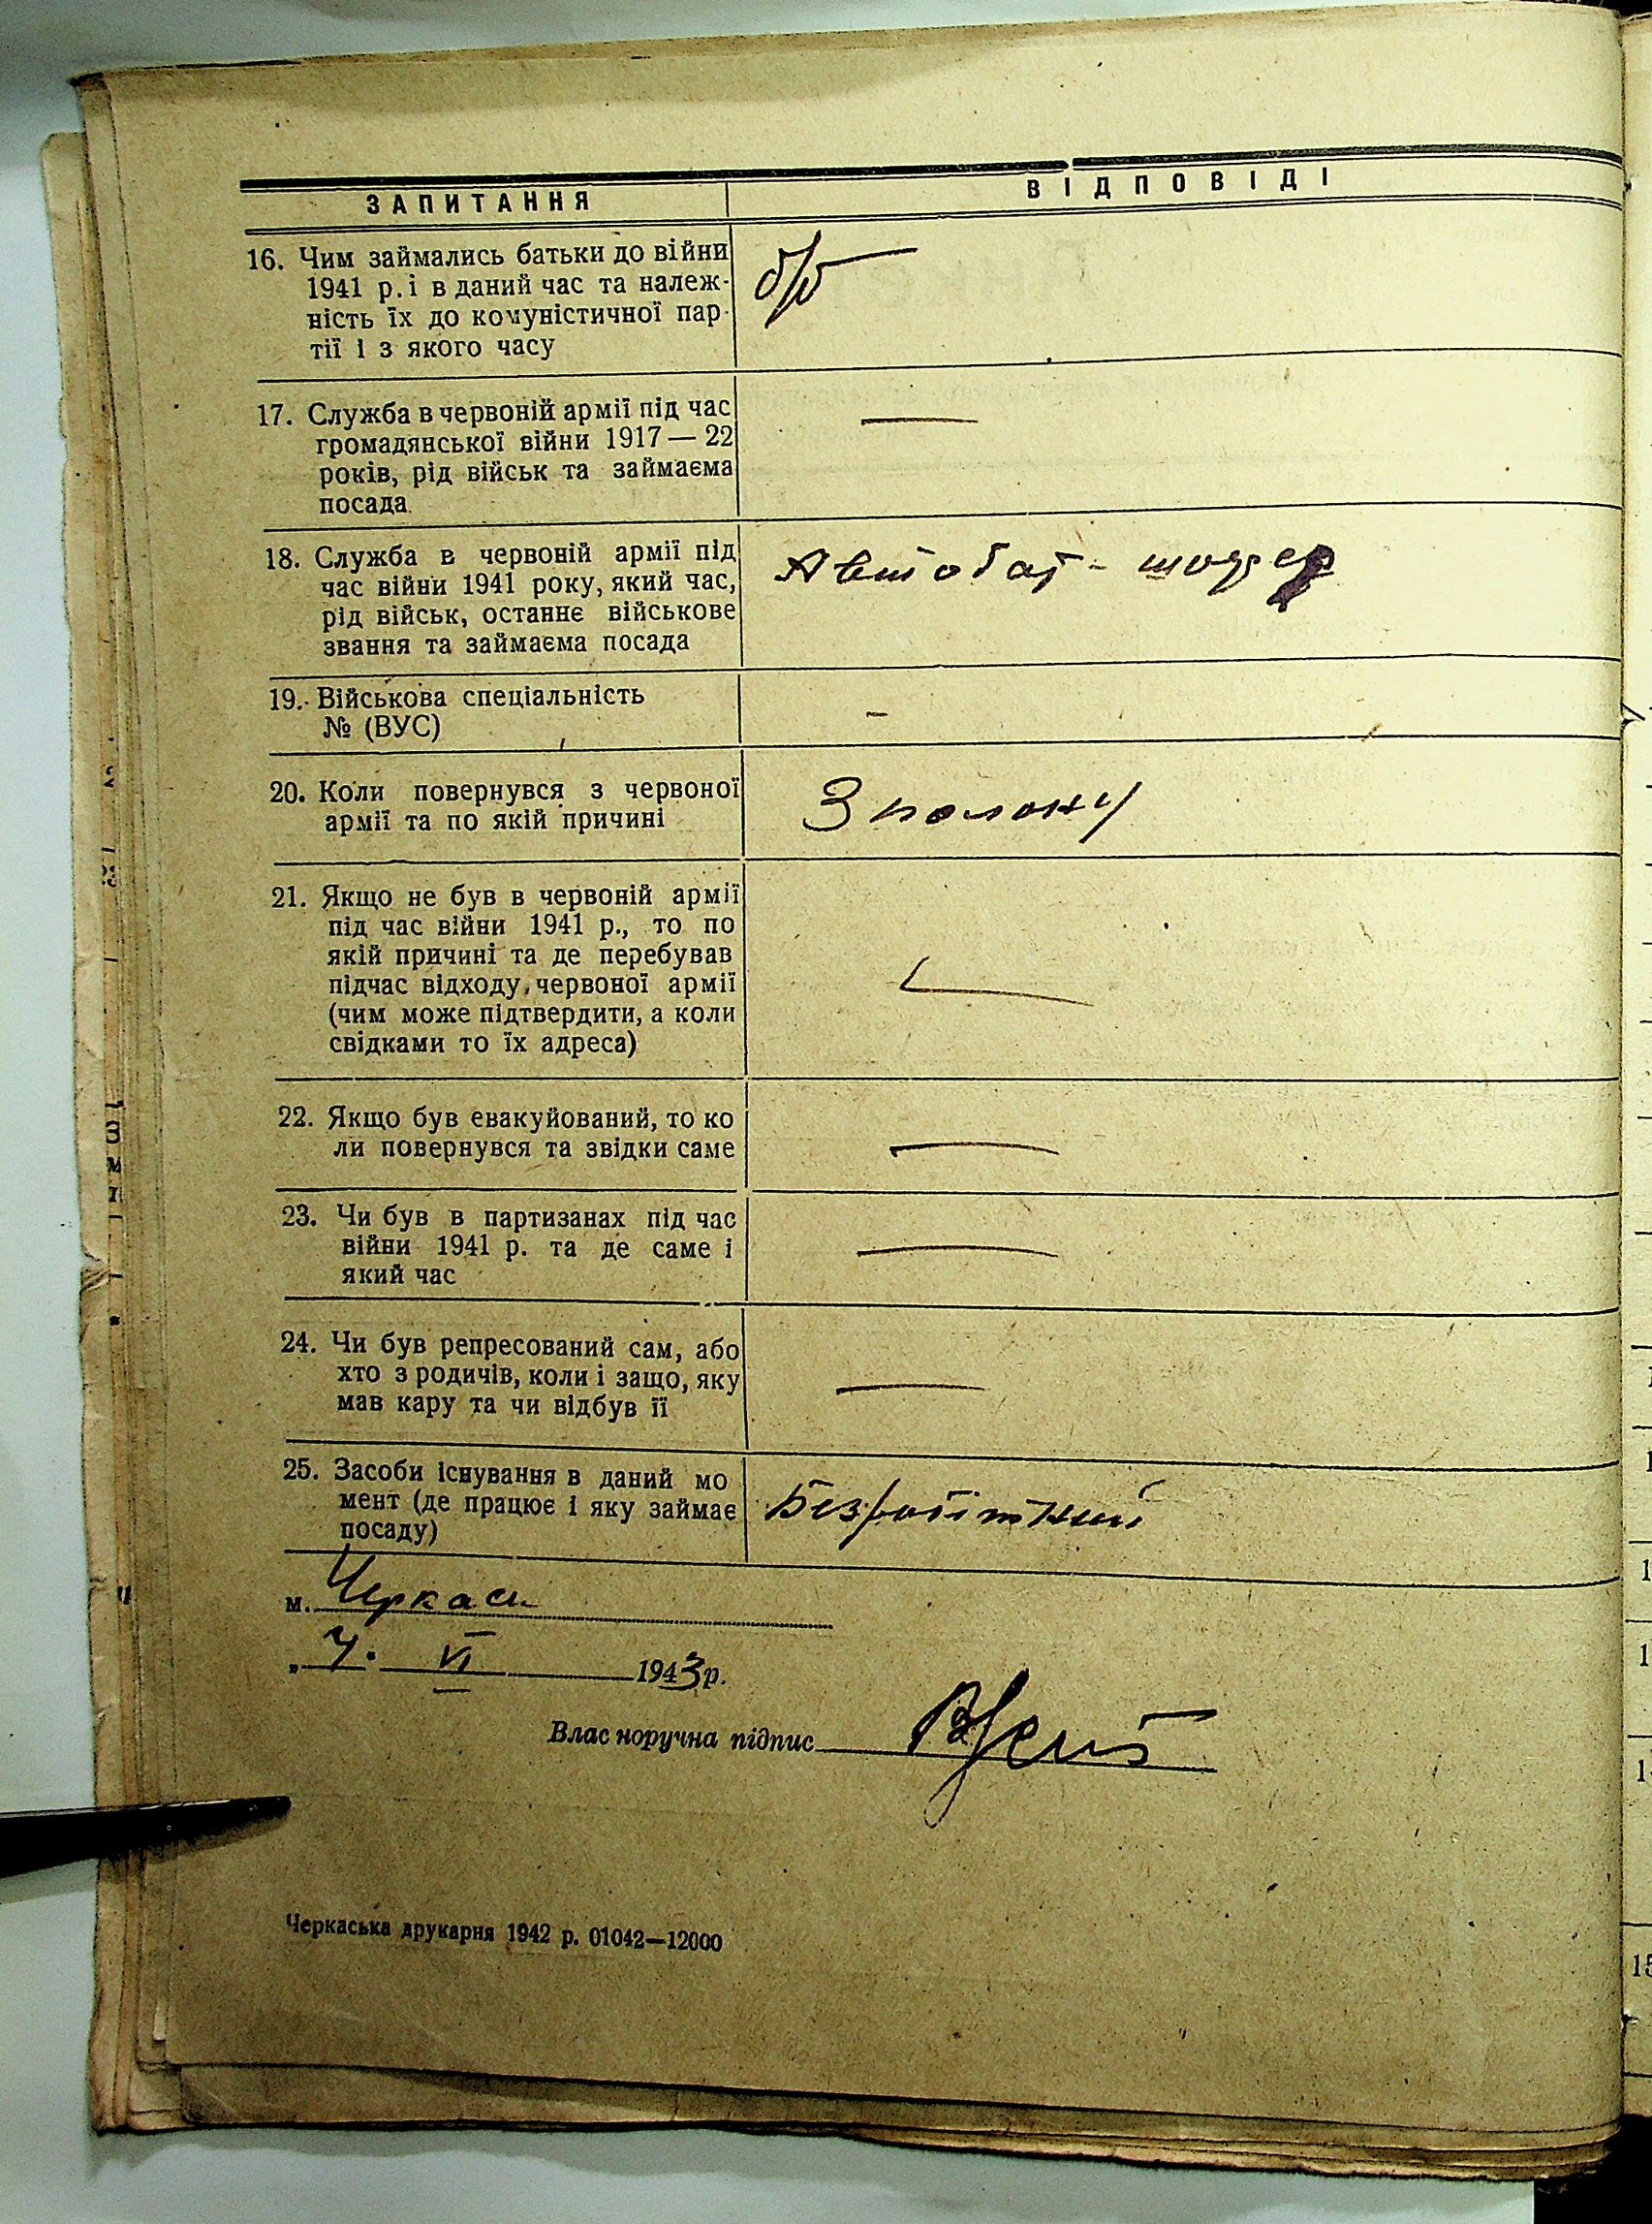 ЗАПИТАННЯ ВІДПОВІДІ
16. Чим займались батьки до війни
1941 р. і в даний час та належ-
ність їх до комуністичної пар-
тії і з якого часу
б/п
17. Служба в червоній армії під час
громадянської війни 1917 — 22
років, рід військ та займаєма
посада.
—
18. Служба в червоній армії під
час війни 1941 року, який час,
рід військ, останнє військове
звання та займаєма посада
Автобат - шофер
19. Військова спеціальність
№ (ВУС)
-
20. Коли повернувся з червоної
армії та по якій причині
З полону
21. Якщо не був в червоній армії
під час війни 1941 р., то по
якій причині та де перебував
підчас відходу червоної армії
(чим може підтвердити, а коли
свідками то їх адреса)
—
22. Якщо був евакуйований, то ко
ли повернувся та звідки саме
—
23. Чи був в партизанах під час
війни 1941 р. та де саме і
який час
—
24. Чи був репресований сам, або
хто з родичів, коли і защо, яку
мав кару та чи відбув її
—
25. Засоби існування в даний мо
мент (де працює і яку займає
посаду)
Безробітний
м. Черкаси
" VI 1943 р.
Влас норучна підпис
Черкаська друкарня 1942 р. 01042—12000